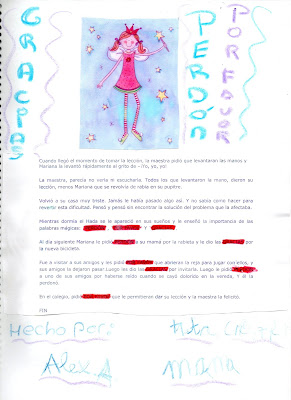 GRACIAS
PERDÓN
POR FAVOR
Cuando llegó el momento de tomar la lección, la maestra pidió que levantaran las manos y
Mariana la levantó rápidamente al grito de –¡Yo, yo, yo!
La maestra, parecía no verla ni escucharla. Todos los que levantaron la mano, dieron su
lección, menos Mariana que se revolvía de rabia en su pupitre.
Volvió a su casa muy triste. Jamás le había pasado algo así. Y no sabía como hacer para
revertir esta dificultad. Pensó y pensó sin encontrar la solución del problema que la afectaba.
Mientras dormía el Hada se le apareció en sus sueños y le enseñó la importancia de las
palabras mágicas: Y
Al día siguiente Mariana le pidió a su mamá por la rabieta y le dio las por
la nueva bicicleta.
Fue a visitar a sus amigos y les pidió que abrieran la reja para jugar con ellos, y
sus amigos la dejaron pasar. Luego les dio las por invitarla. Luego le pidió
a uno de sus amigos por haberse reído cuando se cayó dolorido en la vereda, Y él la
perdonó.
En el colegio, pidió que le permitieran dar su lección y la maestra la felicitó.
FIN
Hecho por:
Alex. A